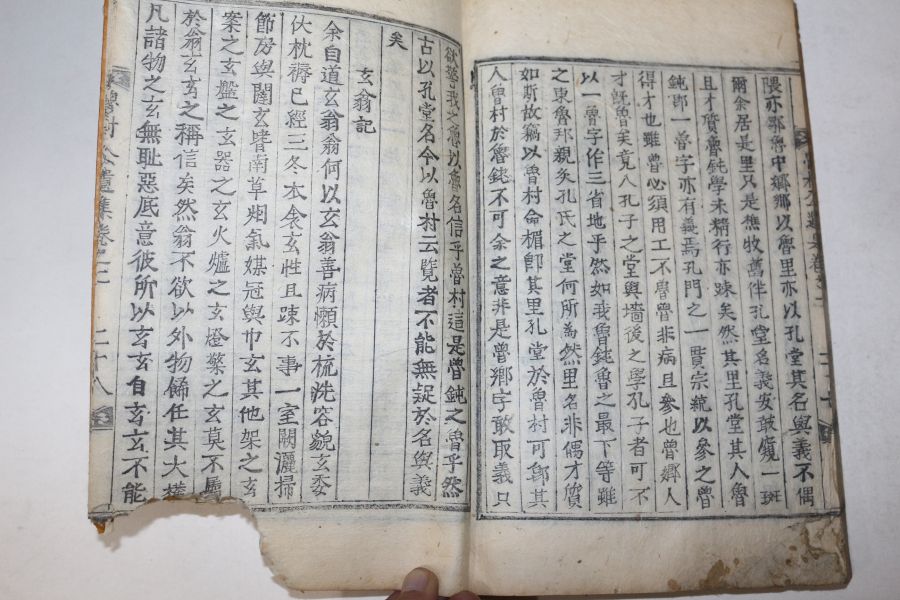 隈亦鄒魯中鄉鄉以魯里亦以孔堂其名與義不偶
爾余居是里只是樵牧舊伴孔堂名義安敢窺一斑
且才質魯鈍學未精行亦踈矣然其里孔堂其人魯
鈍鄙一魯字亦有義焉孔門之一貫宗統以參之魯
得才也雖魯必須用工不魯魯非病且參也魯鄉人
才旣魯矣竟入孔子之堂與墻後之學孔子者可不
以一魯字作三省地乎然如我魯鈍魯之最下等雖
之東魯邦親炙孔氏之堂何所為然里名非偶才質
如斯故竊以魯村命楣卽其里孔堂於魯村可鄙其
人魯村於魯鈍不可余之意非是魯鄉字敢取義只
欲警我之魯以魯名信乎魯村這是魯鈍之魯乎然
古以孔堂名今以魯村云覽者不能無疑於名與義
矣
玄翁記
余自道玄翁翁何以玄翁善病懶於梳洗容貌玄委
伏枕褥已經三冬衣衾玄性且踈不事一室闕灑掃
節房與闥玄嗜南草烟氣媒冠與巾玄其他架之玄
案之玄盤之玄器之玄火爐之玄燈檠之玄莫不
於翁玄玄之稱信矣然翁不欲以外物飾任其大
凡諸物之玄無耻惡底意彼所以玄玄自玄玄不能
魯村公遺集卷之二 二十八